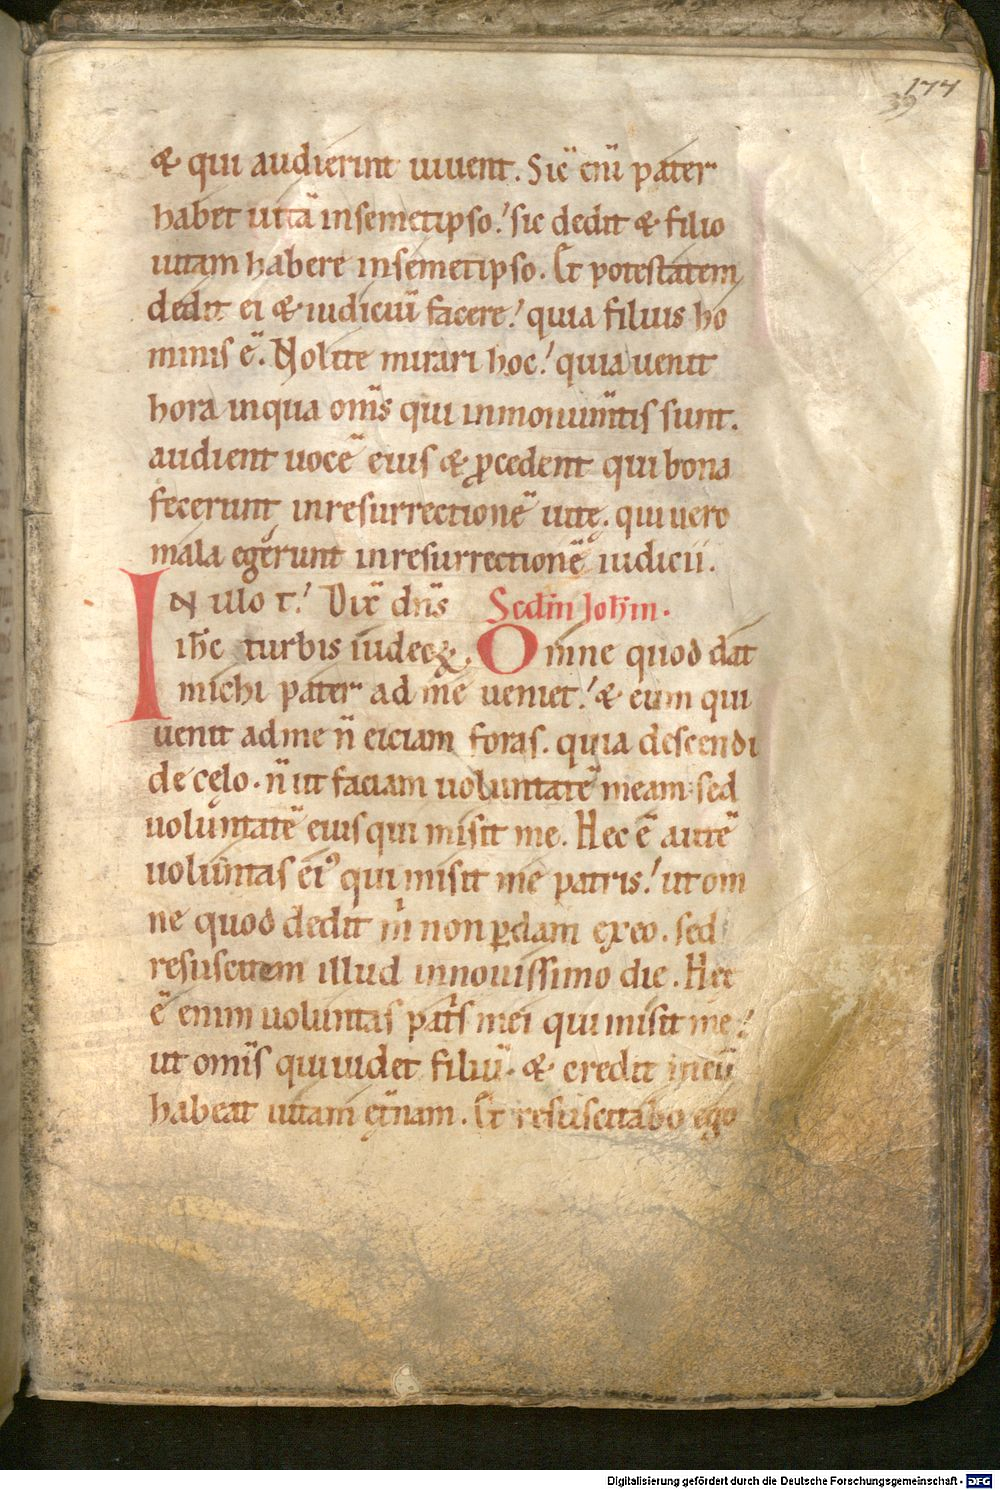 177
39
& qui audierint uiuent. Sic̄ eni̅ pater
habet uitā insemetipso. sic dedit & filio
uitam habere insemetipso. Et potestatem
dedit ei & iudiciū facere. quia filius ho
minis ē. Nolite mirari hoc. quia uenit
hora inqua om̅s qui inmonum̅tis sunt.
audient uocē eius & ꝓcedent qui bona
fecerunt inresurrectionē uitę. qui uero
mala egerunt inresurrectionē iudicii.
IN illo t. Dix̅ dn̅s Scdm̅ Joh̅m.
ih̅c turbis iudeoꝝ. Omne quod dat
michi pater ad me ueniet. & eum qui
uenit ad me n̅ eiciam foras. quia descendi
de cęlo. n̅ ut faciam uoluntatē meam sed
uoluntatē eius qui misit me. Hec ē autē
uoluntas ei⁹ qui misit me patris. ut om
ne quod dedit m̍ non ꝑdam exeo. sed
resuscitem illud innouissimo die. Hec
ē enim uoluntas pat̍s mei qui misit me.
ut om̅is qui uidet filiū. & credit in eū
habeat uitam et̅nam. Et resuscitabo ego
Digitalisierung gefördert durch die Deutsche Forschungsgemeinschaft - DFG